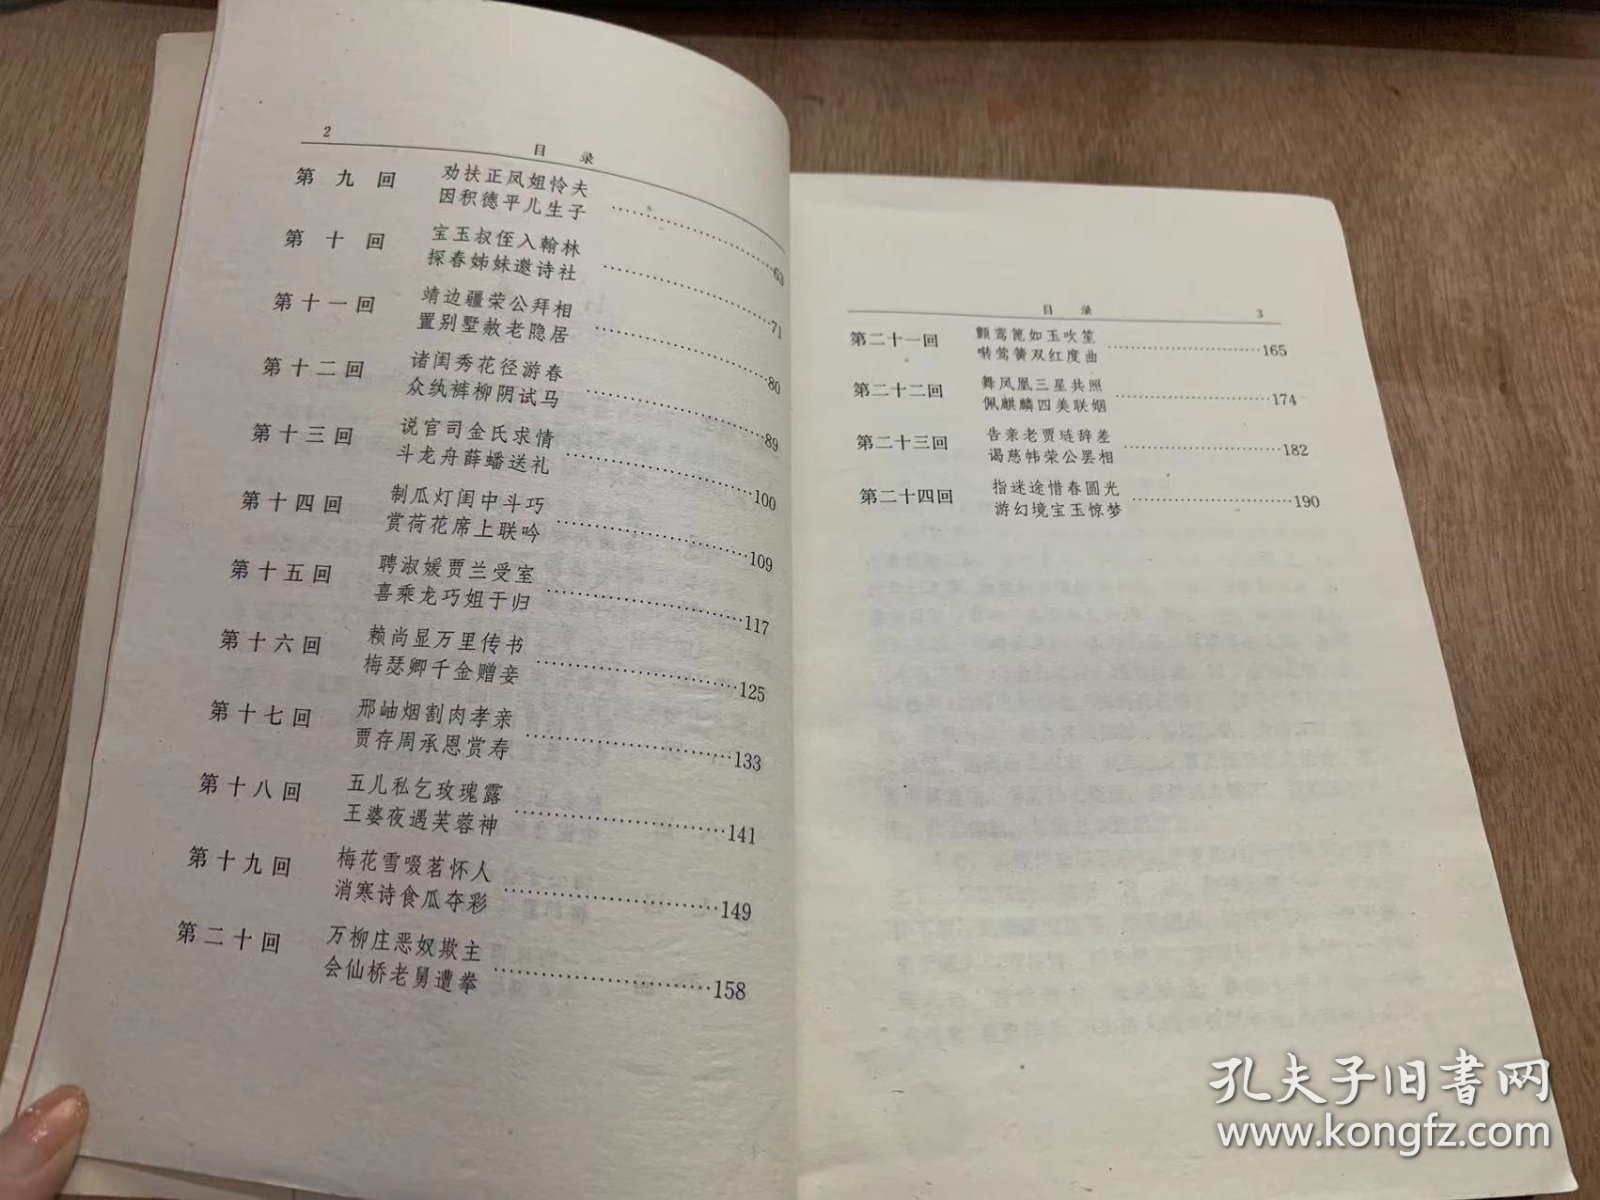 2
目 录
第九回 劝扶正凤姐怜夫
因积德平儿生子 63
第十回 宝玉叔侄入翰林
探春姊妹邀诗社 71
第十一回 靖边疆荣公拜相
置别墅赦老隐居 80
第十二回 诸闺秀花径游春
众纨裤柳阴试马 89
第十三回 说官司金氏求情
斗龙舟薛蟠送礼 100
第十四回 制瓜灯闺中斗巧
赏荷花席上联吟 109
第十五回 聘淑媛贾兰受室
喜乘龙巧姐于归 117
第十六回 赖尚显万里传书
梅瑟卿千金赠妾 125
第十七回 邢岫烟割肉孝亲
贾存周承恩赏寿 133
第十八回 五儿私乞玫瑰露
王婆夜遇芙蓉神 141
第十九回 梅花雪啜茗怀人
消寒诗食瓜夺彩 149
第二十回 万柳庄恶奴欺主
会仙桥老舅遭拳 158
目 录
3
第二十一回 颤鸾篦如玉吹笙
啭莺簧双红度曲 165
第二十二回 舞凤凰三星共照
佩麒麟四美联姻 174
第二十三回 告亲老贾琏辞差
谒慈帏荣公罢相 182
第二十四回 指迷途惜春圆光
游幻境宝玉惊梦 190
孔夫子旧书网
www.kongfz.com